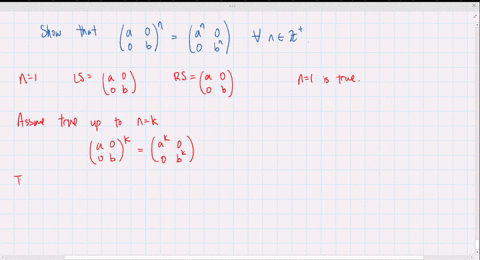 Show that (a 0 0 b)^n = (a^n 0 0 b^n) ∀ n ∈ ℤ^+
n=1 LS = (a 0 0 b) RS = (a 0 0 b) n=1 is true.
Assume true up to n=k
(a 0 0 b)^k = (a^k 0 0 b^k)
T